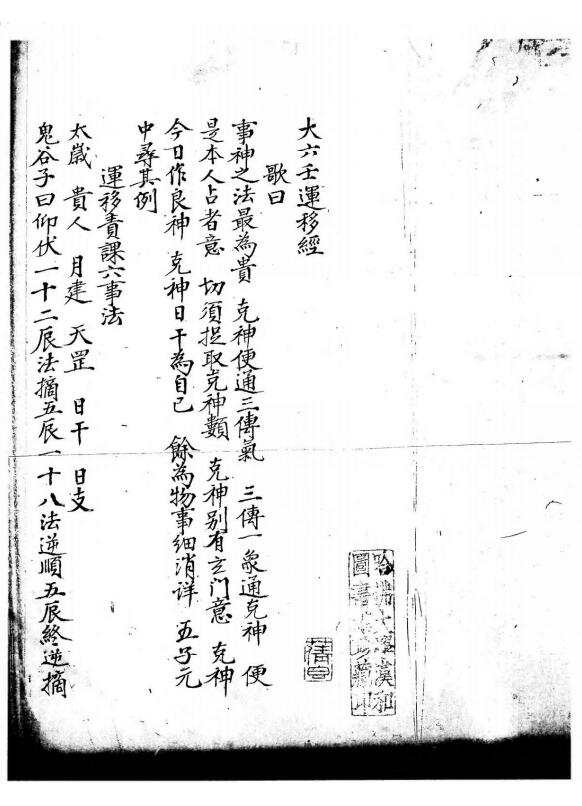 大六壬運移經
歌曰
事神之法最為貴 克神便通三傳氣 三傳一象通克神 便
是本人占者意 切須捉取克神類 克神别有玄门意 克神
今日作良神 克神日干為自己 餘為物事细消详 五子元
中尋其例
運移責課六事法
太歲 貴人 月建 天罡 日干 日支
鬼谷子曰仰伏一十二辰法摘五辰一十八法逆順五辰終逆摘
哈佛大學漢和
圖書館珍藏印